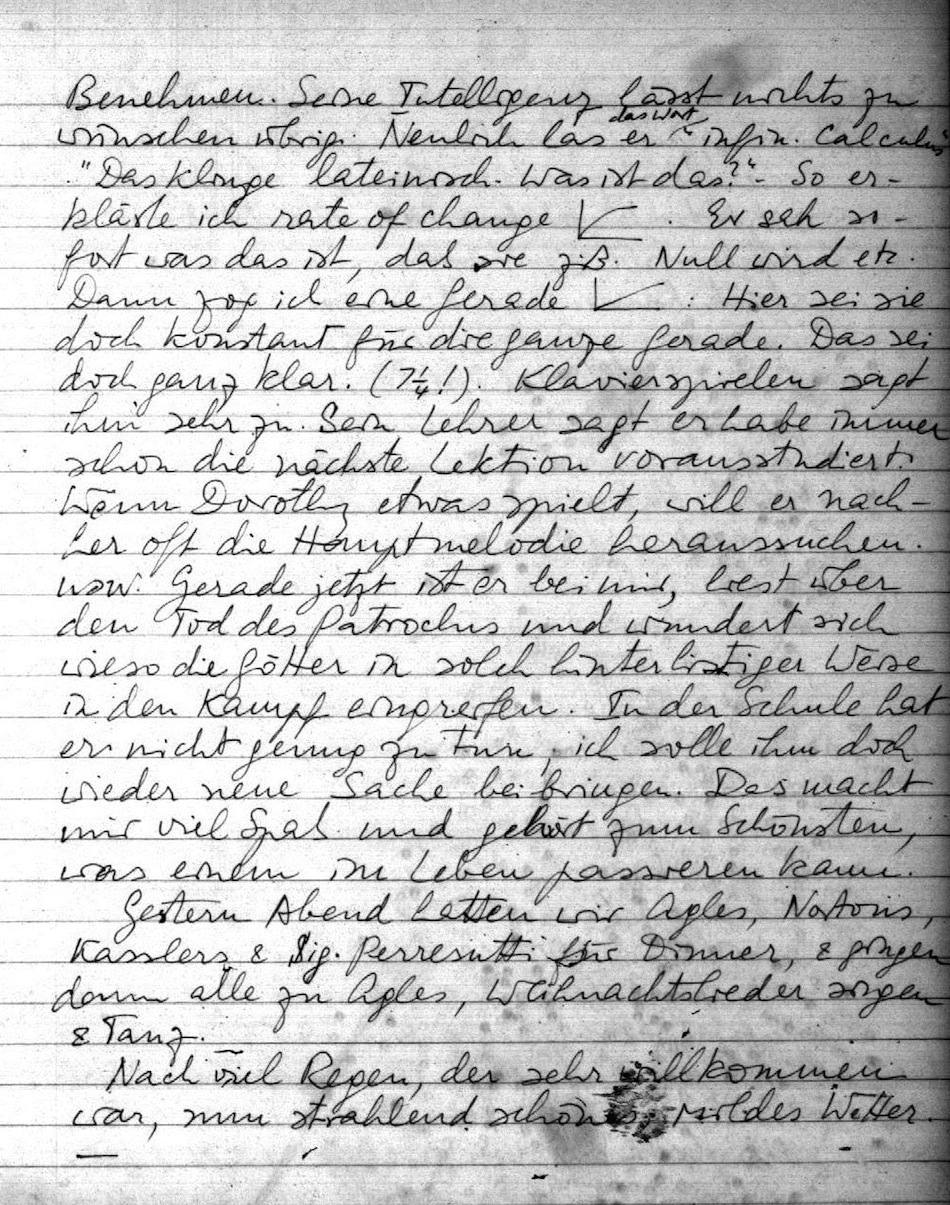 Benehmen. Seine Intelligenz lässt nichts zu
wünschen übrig. Neulich las er das Wort "infin. Calculus
"Das klinge lateinisch. Was ist das?" - So er-
klärte ich rate of change. Er sah so-
fort was das ist, dass sie z.B. Null wird etc.
Dann zog ich eine Gerade. Hier sei sie
doch konstant für die ganze Gerade. Das sei
doch ganz klar. (7¼!). Klavierspielen sagt
ihm sehr zu. Sein Lehrer sagt er habe immer
schon die nächste Lektion vorausstudiert.
Wenn Dorothy etwas spielt, will er nach-
her oft die Hauptmelodie heraussuchen.
usw. Gerade jetzt ist er bei mir, liest über
den Tod des Patroclus und wundert sich
wieso die Götter in solch hinterlistiger Weise
in den Kampf eingreifen. In der Schule hat
er nicht genug zu tun, ich solle ihm doch
wieder neue Sache beibringen. Das macht
mir viel Spass und gehört zum Schönsten,
was einem im Leben passieren kann.
Gestern Abend hatten wir Agles, Nortons,
Kasslers & Sig. für Dinner, & gingen
dann alle zu Agles, Weihnachtslieder singen
& Tanz.
Nach viel Regen, der sehr willkommen
war, nun strahlend schönes, mildes Wetter.